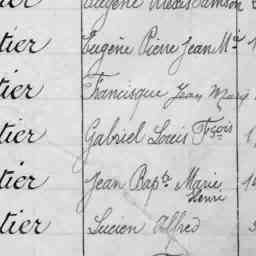 tier Eugène Alexis Samson
tier Eugène Pierre Jean Mie
tier Francisque Jean Mary
tier Gabriel Louis Fçois
tier Jean Bapte Marie
Henri
tier Lucien Alfred